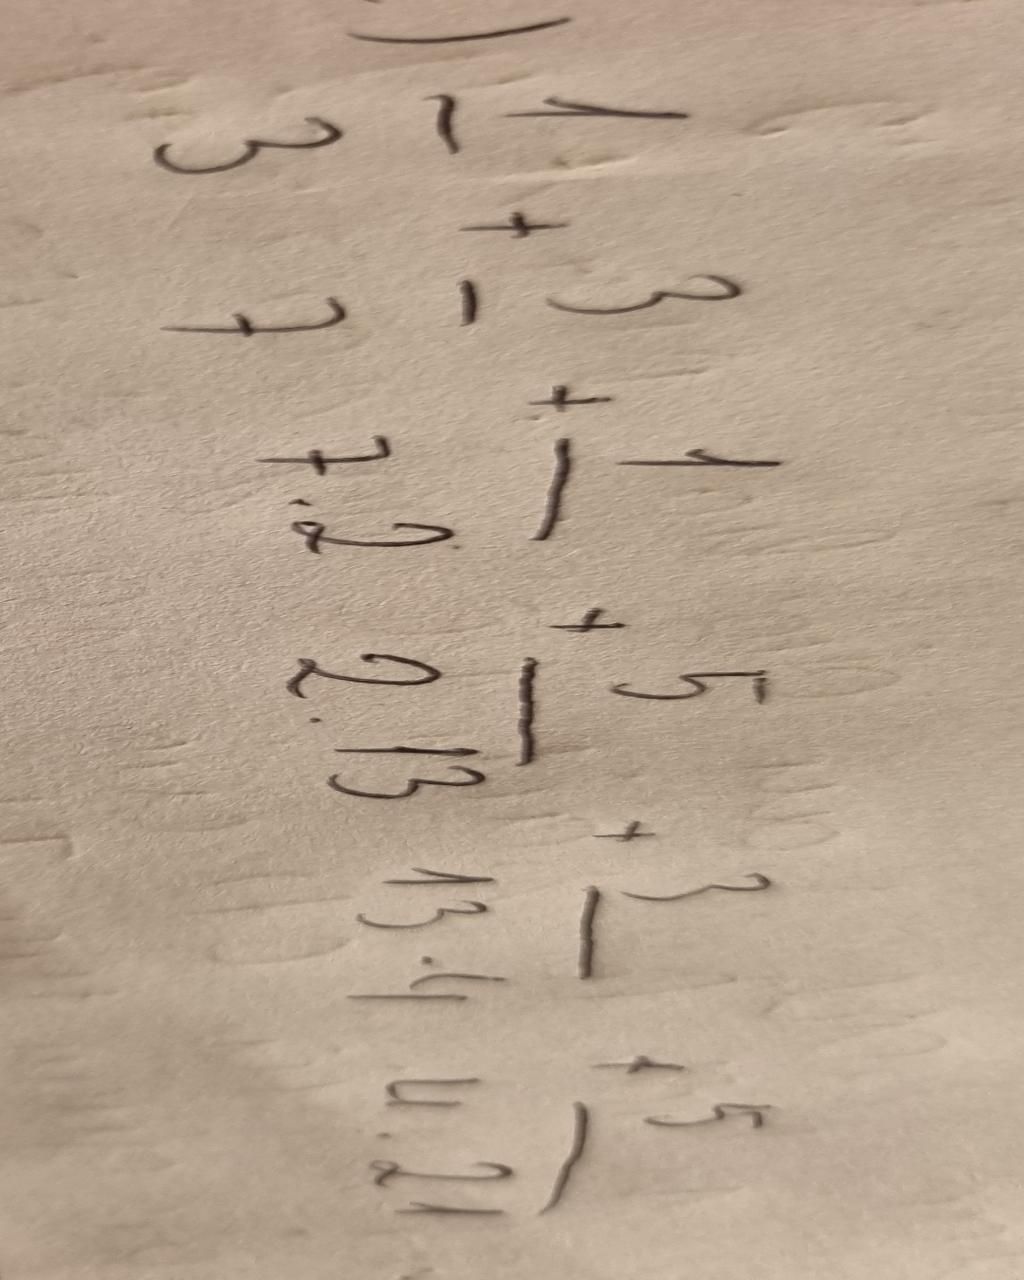 1/3 + 3/7 + 1/7.2 + 5/2.13 + 3/13.4 + 5/4.21